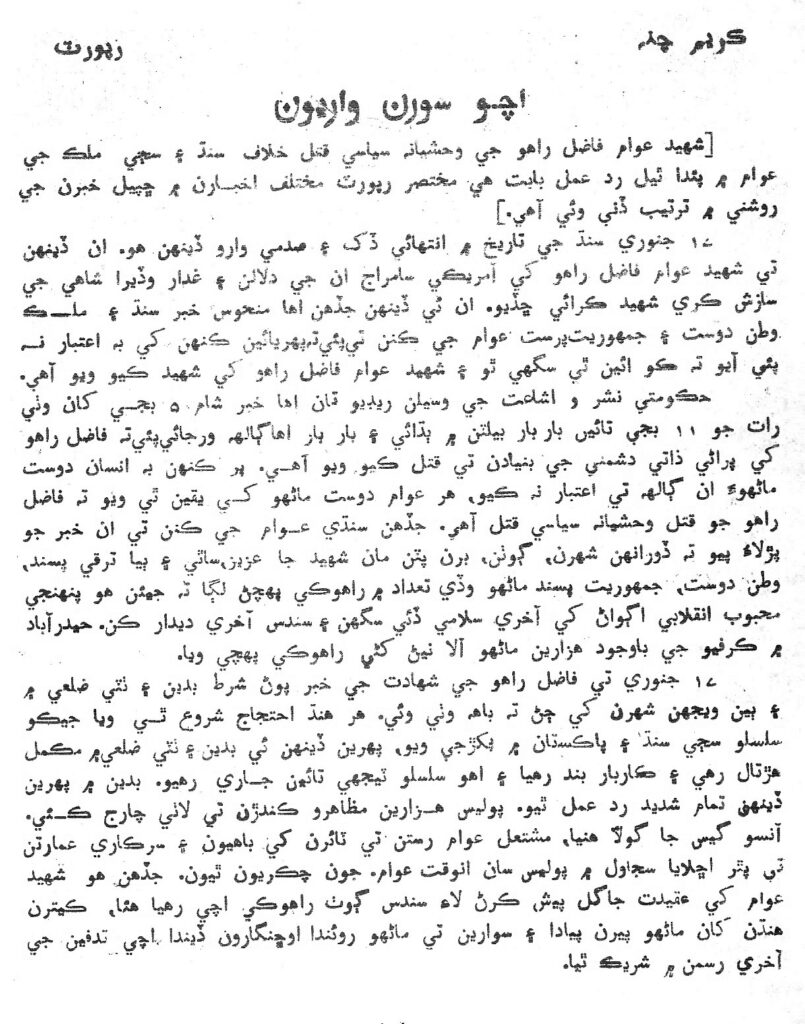 ڪريم چنہ
رپورٽ
اچو سورن واريون
[شھيد عوام فاضل راھو جي وحشيانہ سياسي قتل خلاف سنڌ ۽ سڄي ملڪ جي
عوام ۾ پئدا ٿيل رد عمل بابت ھي مختصر رپورٽ مختلف اخبارن ۾ ڇپيل خبرن جي
روشني ۾ ترتيب ڏني وئي آھي.]
١٧ جنوري سنڌ جي تاريخ ۾ انتھائي ڏک ۽ صدمي وارو ڏينھن ھو. ان ڏينھن
تي شھيد عوام فاضل راھو کي آمريڪي سامراج ان جي دلالن ۽ غدار وڏيرا شاھي جي
سازش ڪري شھيد ڪرائي ڇڏيو. ان ئي ڏينھن جڏھن اھا منحوس خبر سنڌ ۽ ملــڪ
وطن دوست ۽ جمھوريت‌پرست عوام جي ڪنن تي‌پئي‌تہ‌پھريائين ڪنھن کي بہ اعتبار نــہ
پئي آيو تہ ڪو ائين ٿي سگھي ٿو ۽ شھيد عوام فاضل راھو کي شھيد ڪيو ويو آھي.
حڪومتي نشر و اشاعت جي وسيلن ريڊيو تان اھا خبر شام ٥ بجــي کان وٺي
رات جو ١١ بجي تائين بار بار بيلٽن ۾ ٻڌائي ۽ بار بار اھا‌ڳالھہ ورجائي‌پئي‌تہ فاضل راھو
کي پراڻي ذاتي دشمني جي بنيادن تي قتل ڪيو ويو آھــي. پر ڪنھن بہ انسان دوست
ماڻھوءَ ان ڳالھہ تي اعتبار نہ ڪيو، ھر عوام دوست ماڻھو کــي يقين ٿي ويو تہ فاضل
راھو جو قتل وحشيانہ سياسي قتل آھي. جڏھن سنڌي عــوام جي ڪنن تي ان خبر جو
پڙلاءُ پيو تہ ڏورانھن شھرن، ڳوٺن، برن پٽن مان شھيد جا عزيز،ساٿي ۽ ٻيا ترقي پسند،
وطن دوست، جمھوريت پسند ماڻھو وڏي تعداد ۾ راھوڪي پھچڻ لڳا تہ جيئن ھو پنھنجي
محبوب انقلابي اڳواڻ کي آخري سلامي ڏئي سگھن ۽ سندس آخري ديدار ڪن. حيدرآباد
۾ ڪرفيو جي باوجود ھزارين ماڻھو آلا نيڻ کڻي راھوڪي پھچي ويا.
١٧ جنوري تي فاضل راھو جي شھادت جي خبر پوڻ شرط بدين ۽ ٺٽي ضلعي ۾
۽ ٻين ويجھن شھرن کي ڄڻ تہ باھ وٺي وئي. ھر ھنڌ احتجاج شروع ٿــي ويا جيڪو
سلسلو سڄي سنڌ ۽ پاڪستان ۾ پکڙجي ويو، پھرين ڏينھن ئي بدين ۽ ٺٽي ضلعي۾ مڪمل
ھڙتال رھي ۽ ڪاربار بند رھيا ۽ اھو سلسلو ٽيجھي تائين جــاري رھيو. بدين ۾ پھرين
ڏينھن تمام شديد رد عمل ٿيو. پوليس ھــزارين مظاھرو ڪندڙن تي لاٺي چارج ڪــئي.
آنسو گيس جا گولا ھنيا، مشتعل عوام رستن تي ٽائرن کي باھيون ۽ سرڪاري عمارتن
تي پٿر اڇلايا سجاول ۾ پوليس سان انوقت عوام. جون چڪريون ٿيون. جڏھن ھو شھيد
عوام کي عقيدت جاگل پيش ڪرڻ لاءِ سندس ڳوٺ راھوڪي اچي رھيا ھئا، ڪيترن
ھنڌن کان ماڻھو پيرن پيادا ۽ سوارين تي ماڻھو روئندا اوڇنگارون ڏيندا اچي تدفين جي
آخري رسمن ۾ شريڪ ٿيا.